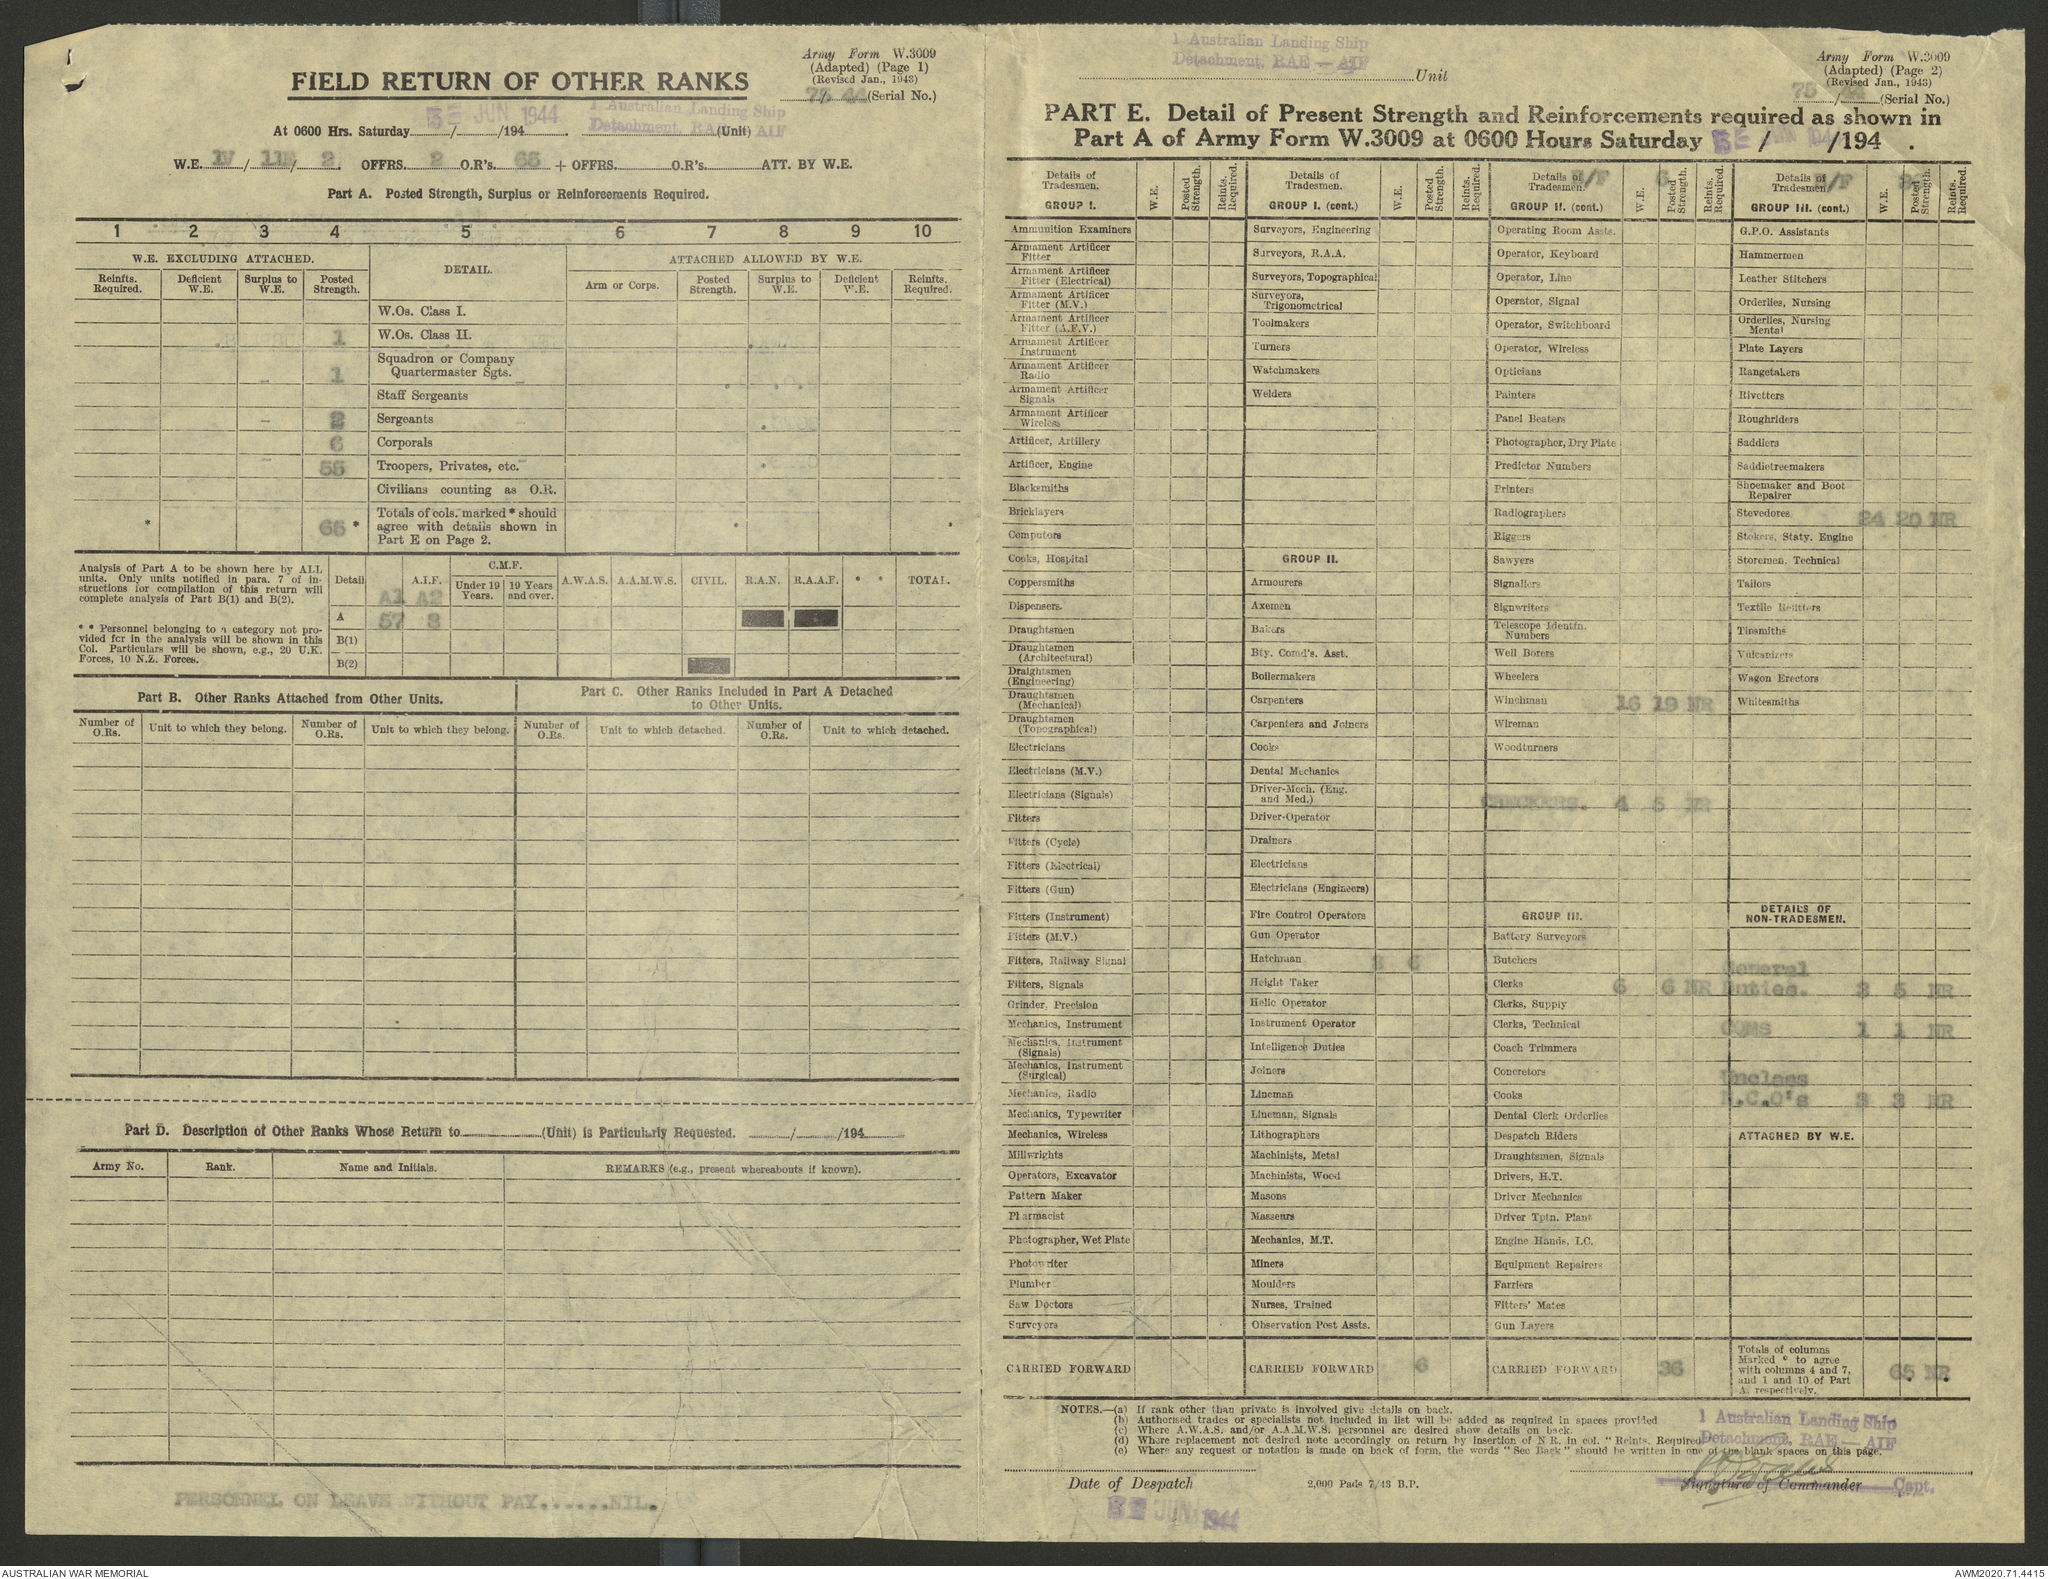 Army Form W.3009
(Adapted) (Page 1)
(Revised Jan., 1943)
75/44 (Serial No.)
FIELD RETURN OF OTHER RANKS
JUN 1944
1 Australian Landing Ship
Detachment, RAE AIF
At 0600 Hrs. Saturday / /194 . (Unit)
W.E. IV / 11E / 2. OFFRS. 2 O.R's. 65 + OFFRS. O.R's. ATT. BY W.E.
Part A. Posted Strength, Surplus or Reinforcements Required.
1 2 3 4 5 6 7 8 9 10
W.E. EXCLUDING ATTACHED. DETAIL. ATTACHED ALLOWED BY W.E.
Reinfts. Required. Deficient W.E. Surplus to W.E. Posted Strength. Arm or Corps. Posted Strength. Surplus to W.E. Deficient W.E. Reinfts. Required.
W.Os. Class I.
1 W.Os. Class II.
1 Squadron or Company
Quartermaster Sgts.
Staff Sergeants
2 Sergeants
6 Corporals
55 Troopers, Privates, etc.
Civilians counting as O.R.
* 65 * Totals of cols. marked * should
agree with details shown in
Part E on Page 2. * *
Analysis of Part A to be shown here by ALL
units. Only units notified in para. 7 of in-
structions for compilation of this return will
complete analysis of Part B(1) and B(2).
* * Personnel belonging to a category not pro-
vided for in the analysis will be shown in this
Col. Particulars will be shown, e.g., 20 U.K.
Forces, 10 N.Z. Forces.
Detail A.I.F. C.M.F. Under 19 Years. 19 Years and over. A.W.A.S. A.A.M.W.S. CIVIL. R.A.N. R.A.A.F. * * TOTAL.
A1 A2
A 57 8
B(1)
B(2)
Part B. Other Ranks Attached from Other Units.
Part C. Other Ranks Included in Part A Detached
to Other Units.
Number of O.Rs. Unit to which they belong. Number of O.Rs. Unit to which they belong. Number of O.Rs. Unit to which detached. Number of O.Rs. Unit to which detached.
Part D. Description of Other Ranks Whose Return to (Unit) is Particularly Requested. / /194
Army No. Rank. Name and Initials. REMARKS (e.g., present whereabouts if known).
PERSONNEL ON LEAVE WITHOUT PAY......NIL.
1 Australian Landing Ship
Detachment, RAE — AIF
Unit
Army Form W.3009
(Adapted) (Page 2)
(Revised Jan., 1943)
75/44 (Serial No.)
PART E. Detail of Present Strength and Reinforcements required as shown in
Part A of Army Form W.3009 at 0600 Hours Saturday / /194 .
Details of Tradesmen. W.E. Posted Strength. Reints. Required.
GROUP I.
Ammunition Examiners
Armament Artificer Fitter
Armament Artificer Fitter (Electrical)
Armament Artificer Fitter (M.V.)
Armament Artificer Fitter (A.F.V.)
Armament Artificer Instrument
Armament Artificer Radio
Armament Artificer Signals
Armament Artificer Wireless
Artificer, Artillery
Artificer, Engine
Blacksmiths
Bricklayers
Computors
Cooks, Hospital
Coppersmiths
Dispensers.
Draughtsmen
Draughtsmen (Architectural)
Draightsmen (Engineering)
Draughtsmen (Mechanical)
Draughtsmen (Topographical)
Electricians
Electricians (M.V.)
Electricians (Signals)
Fitters
Fitters (Cycle)
Fitters (Electrical)
Fitters (Gun)
Fitters (Instrument)
Fitters (M.V.)
Fitters, Railway Signal
Fitters, Signals
Grinder, Precision
Mechanics, Instrument
Mechanics, Instrument (Signals)
Mechanics, Instrument (Surgical)
Mechanics, Radio
Mechanics, Typewriter
Mechanics, Wireless
Millwrights
Operators, Excavator
Pattern Maker
Pharmacist
Photographer, Wet Plate
Photowriter
Plumber
Saw Doctors
Surveyors
CARRIED FORWARD
Details of Tradesmen. W.E. Posted Strength. Reints. Required.
GROUP I. (cont.)
Surveyors, Engineering
Surveyors, R.A.A.
Surveyors, Topographical
Surveyors, Trigonometrical
Toolmakers
Turners
Watchmakers
Welders
GROUP II.
Armourers
Axemen
Bakers
Bty. Comd's. Asst.
Boilermakers
Carpenters
Carpenters and Joiners
Cooks
Dental Mechanics
Driver-Mech. (Eng. and Med.)
Driver-Operator
Drainers
Electricians
Electricians (Engineers)
Fire Control Operators
Gun Operator
Hatchman 6
Height Taker
Helio Operator
Instrument Operator
Intelligence Duties
Joiners
Lineman
Lineman, Signals
Lithographers
Machinists, Metal
Machinists, Wood
Masons
Masseurs
Mechanics, M.T.
Miners
Moulders
Nurses, Trained
Observation Post Assts.
CARRIED FORWARD 6
Details of Tradesmen. B/F W.E. 6 Posted Strength. Reints. Required.
GROUP II. (cont.)
Operating Room Assts.
Operator, Keyboard
Operator, Line
Operator, Signal
Operator, Switchboard
Operator, Wireless
Opticians
Painters
Panel Beaters
Photographer, Dry Plate
Predictor Numbers
Printers
Radiographers
Riggers
Sawyers
Signallers
Signwriters
Telescope Identfn. Numbers
Well Borers
Wheelers
Winchman 16 19 NR
Wireman
Woodturners
CHECKERS. 4 5 NR
GROUP III.
Battery Surveyors
Butchers
Clerks 6 6 NR
Clerks, Supply
Clerks, Technical
Coach Trimmers
Concretors
Cooks
Dental Clerk Orderlies
Despatch Riders
Draughtsmen, Signals
Drivers, H.T.
Driver Mechanics
Driver Tptn. Plant
Engine Hands, I.C.
Equipment Repairers
Farriers
Fitters' Mates
Gun Layers
CARRIED FORWARD 36
Details of Tradesmen B/F W.E. 36 Posted Strength. Reints. Required.
GROUP III. (cont.)
G.P.O. Assistants
Hammermen
Leather Stitchers
Orderlies, Nursing
Orderlies, Nursing Mental
Plate Layers
Rangetakers
Rivetters
Roughriders
Saddlers
Saddletreemakers
Shoemaker and Boot Repairer
Stevedores 24 20 NR
Stokers, Staty. Engine
Storemen, Technical
Tailors
Textile Refitters
Tinsmiths
Vulcanizers
Wagon Erectors
Whitesmiths
DETAILS OF
NON-TRADESMEN.
General
Duties. 3 5 NR
CQMS 1 1 NR
Unclass
N.C.O's 3 3 NR
ATTACHED BY W.E.
Totals of columns
Marked * to agree
with columns 4 and 7,
and 1 and 10 of Part
A. respectively. 65 NR
NOTES.—(a) If rank other than private is involved give details on back.
(b) Authorised trades or specialists not included in list will be added as required in spaces provided
(c) Where A.W.A.S. and/or A.A.M.W.S. personnel are desired show details on back.
(d) Where replacement not desired note accordingly on return by insertion of N R. in col. "Reints. Required
(e) Where any request or notation is made on back of form, the words "See Back" should be written in one of the blank spaces on this page.
1 Australian Landing Ship
Detachment, RAE — AIF
Date of Despatch
2,000 Pads 7/43 B.P.
Signature of Commander Capt.
JUN 1944
AUSTRALIAN WAR MEMORIAL
AWM2020.71.4415